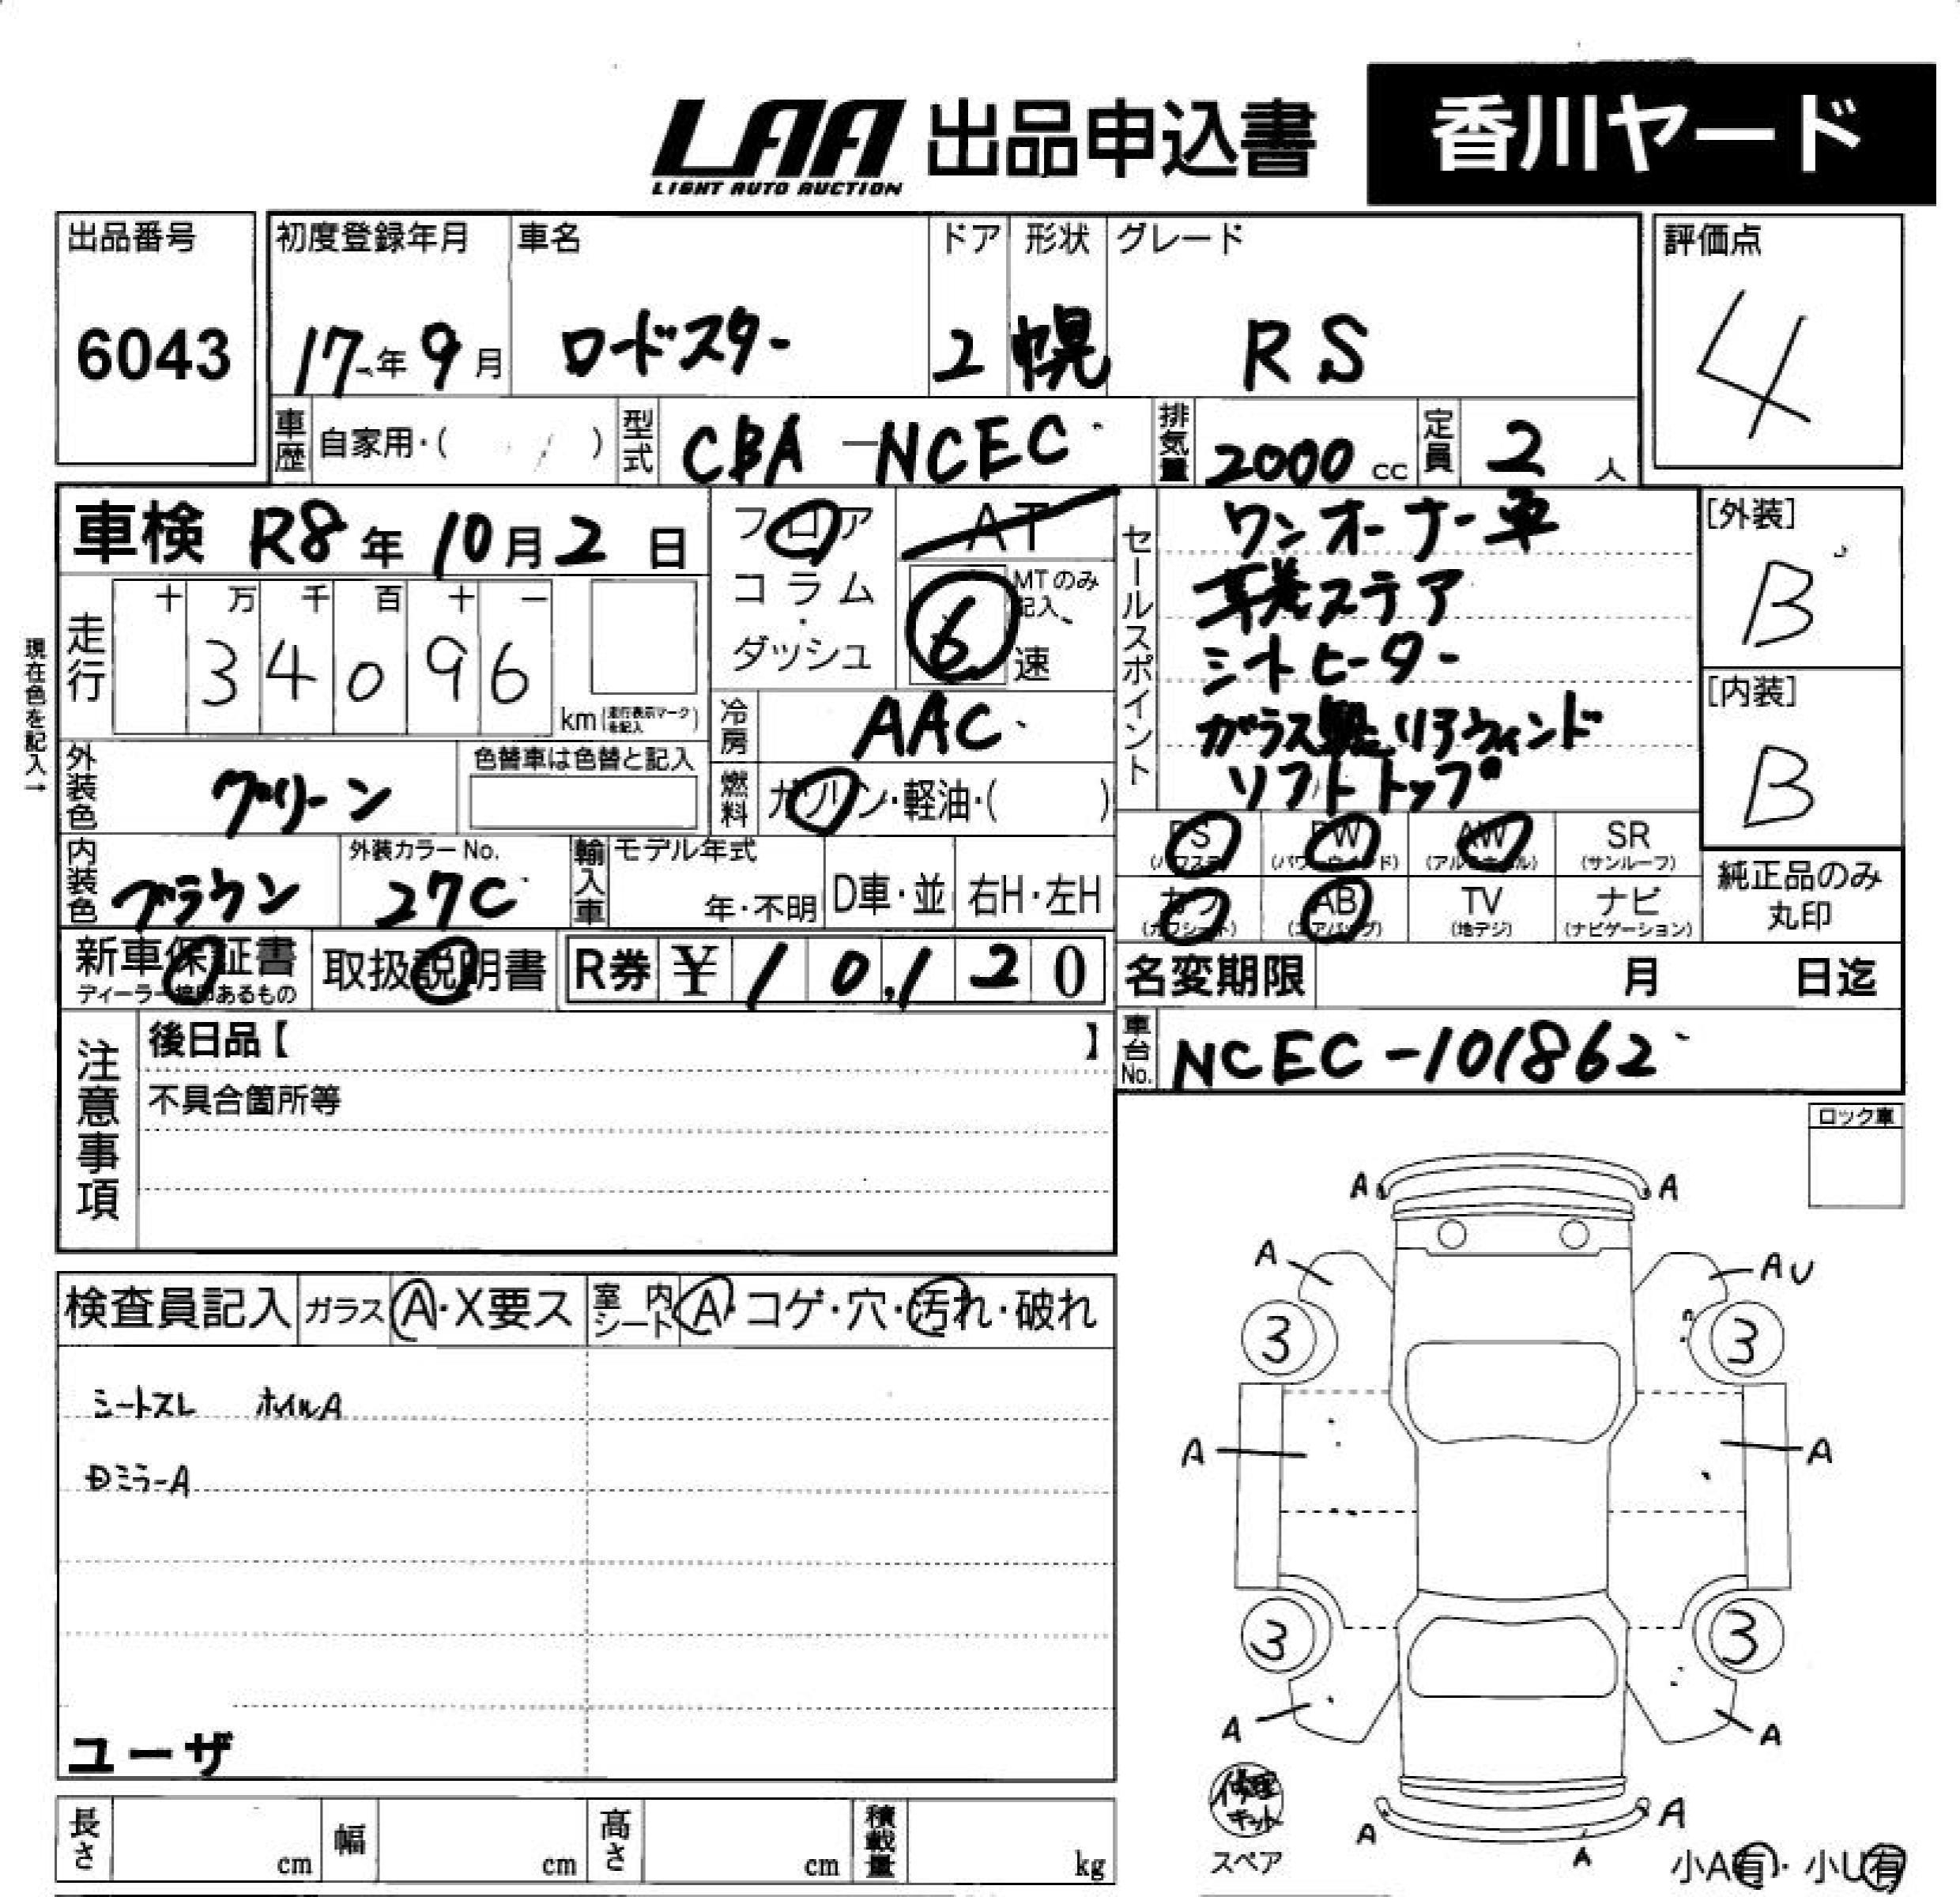 LAA 出品申込書 香川ヤード
LIGHT AUTO AUCTION
出品番号 初度登録年月 車名 ドア 形状 グレード 評価点
6043 17年9月 ロードスター 2 幌 RS 4
車歴 自家用・( / ) 型式 CBA-NCEC 排気量 2000 cc 定員 2人
車検 R8年10月2日
フロア コラム・ダッシュ
AT
6 MTのみ記入 速
セールスポイント
ワンオーナー車
革巻ステア
シートヒーター
ガラス リアウィンド
ソフトトップ
[外装]
B
[内装]
B
現在色を記入→
走行 十 万 千 百 十 一
34096
km (走行表示マークを記入)
冷房 AAC
外装色 グリーン 色替車は色替と記入
燃料 ガソリン・軽油・( )
内装色 ブラウン 外装カラーNo. 27C
輸入車 モデル年式 年・不明 D車・並 右H・左H
PS (パワステ) PW (パワーウインド) AW (アルミホイル) SR (サンルーフ)
カワ (カワシート) AB (エアバッグ) TV (地デジ) ナビ (ナビゲーション)
純正品のみ丸印
新車保証書 取扱説明書 R券 ¥10,120
ディーラー捺印あるもの
名変期限 月 日迄
注意事項
後日品【 】
不具合箇所等
車台No. NCEC-101862
ロック車
検査員記入 ガラス A・X要ス 室内シート A・コゲ・穴・汚れ・破れ
シートスレ ホイルA
DミラーA
ユーザ
A A
A AU
3 3
A A
3 3
A A
A A
A
修理キット
スペア
小A有・小U有
長さ cm 幅 cm 高さ cm 積載量 kg